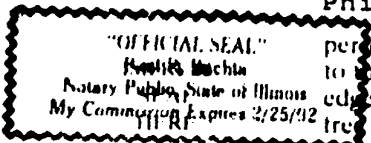 PHI
"OFFICIAL SEAL"
Notary Public, State of Illinois
My Commission Expires 2/25/92
HERE
per
to
edg
tre